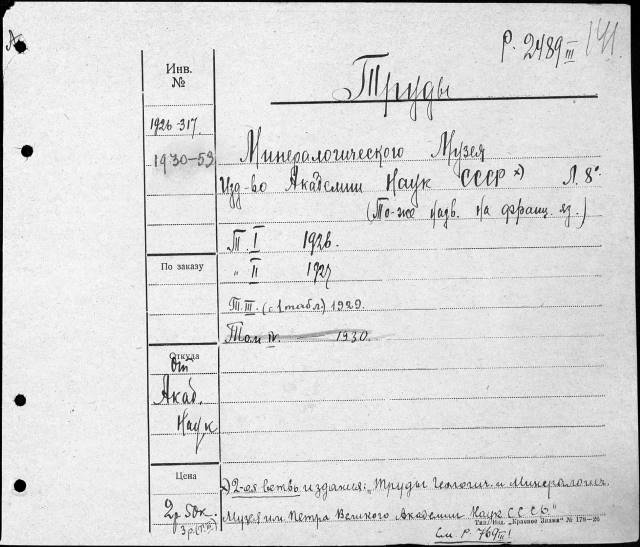 А
Р. 2489 III 141
Инв. №
Труды
1926-317.
1930-53
Минералогического Музея
Изд-во Академии Наук СССР х) Л. 8°.
(То-же назв. на франц. яз.)
Т. I 1926.
" II 1927
По заказу
Т. III. (с 1 табл.) 1929.
Том IV. 1930.
Откуда
От
Акад.
Наук
Цена
2р 50к.
3р. (т. III)
х) 2-ая ветвь издания: "Труды Геологич. и Минералогич.
Музея им. Петра Великого Академии Наук СССР"
Тип./Изд. „Красное Знамя" № 178-26
См. Р. 769 III!